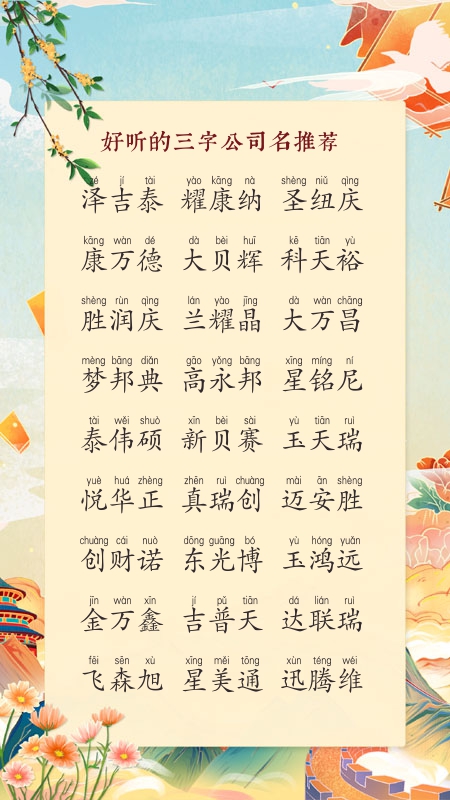 好听的三字公司名推荐
zé jí tài yào kāng nà shèng niǔ qìng
泽吉泰 耀康纳 圣纽庆
kāng wàn dé dà bèi huī kē tiān yù
康万德 大贝辉 科天裕
shèng rùn qìng lán yào jīng dà wàn chāng
胜润庆 兰耀晶 大万昌
mèng bāng diǎn gāo yǒng bāng xīng míng ní
梦邦典 高永邦 星铭尼
tài wěi shuò xīn bèi sài yù tiān ruì
泰伟硕 新贝赛 玉天瑞
yuè huá zhèng zhēn ruì chuàng mài ān shèng
悦华正 真瑞创 迈安胜
chuàng cái nuò dōng guāng bó yù hóng yuǎn
创财诺 东光博 玉鸿远
jīn wàn xīn jí pǔ tiān dá lián ruì
金万鑫 吉普天 达联瑞
fēi sēn xù xīng měi tōng xùn téng wéi
飞森旭 星美通 迅腾维